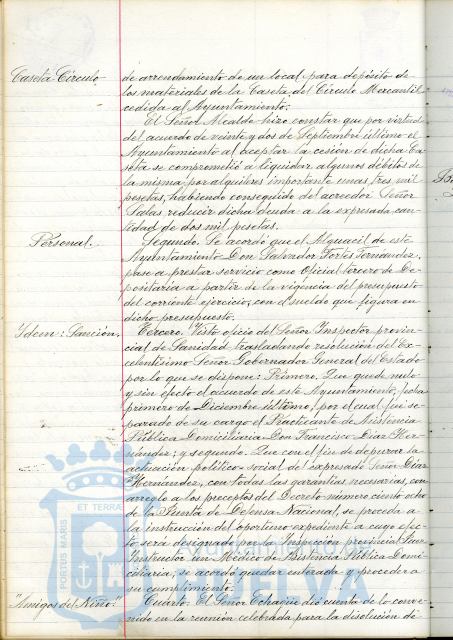 Caseta Círculo
de arrendamiento de un local para depósito de
los materiales de la Caseta del Círculo Mercantil
cedida al Ayuntamiento.
El Señor Alcalde hizo constar que por virtud
del acuerdo de veinte y dos de Septiembre último el
Ayuntamiento al aceptar la cesión de dicha Ca-
seta se comprometió a liquidar algunos débitos de
la misma por alquileres importante unas tres mil
pesetas, habiendo conseguido del acreedor Señor
Salas reducir dicha deuda a la expresada can-
tidad de dos mil pesetas.
Personal.
Segundo. Se acordó que el Alguacil de este
Ayuntamiento Don Salvador Fortes Fernandez,
pase a prestar servicio como Oficial tercero de De-
positaria a partir de la vigencia del presupuesto
del corriente ejercicio, con el sueldo que figura en
dicho presupuesto.
Ydem: Sanción.
Tercero. Visto oficio del Señor Inspector provin-
cial de Sanidad trasladando resolución del Ex-
celentísimo Señor Gobernador General del Estado
por lo que se dispone: Primero. Que quede nulo
y sin efecto el acuerdo de este Ayuntamiento, fecha
primero de Diciembre último, por el cual fué se-
parado de su cargo el Practicante de Asistencia
Pública Domiciliaria Don Francisco Diaz Her-
nández; y segundo. Que con el fin de depurar la
actuación político-social del expresado Señor Diaz
Hernández, con todas las garantías necesarias, con
arreglo a los preceptos del Decreto número ciento ocho
de la Junta de Defensa Nacional, se proceda a
la instrucción del oportuno expediente a cuyo efec-
to será designado por la Inspección provincial Juez
Instructor un Médico de Asistencia Pública Domi-
ciliaria, se acordó quedar enterada y proceder a
su cumplimiento.
"Amigos del Niño."
Cuarto. El Señor Echagüe dió cuenta de lo conve-
nido en la reunión celebrada para la disolución de
PORTUS MARIS
ET TERRA